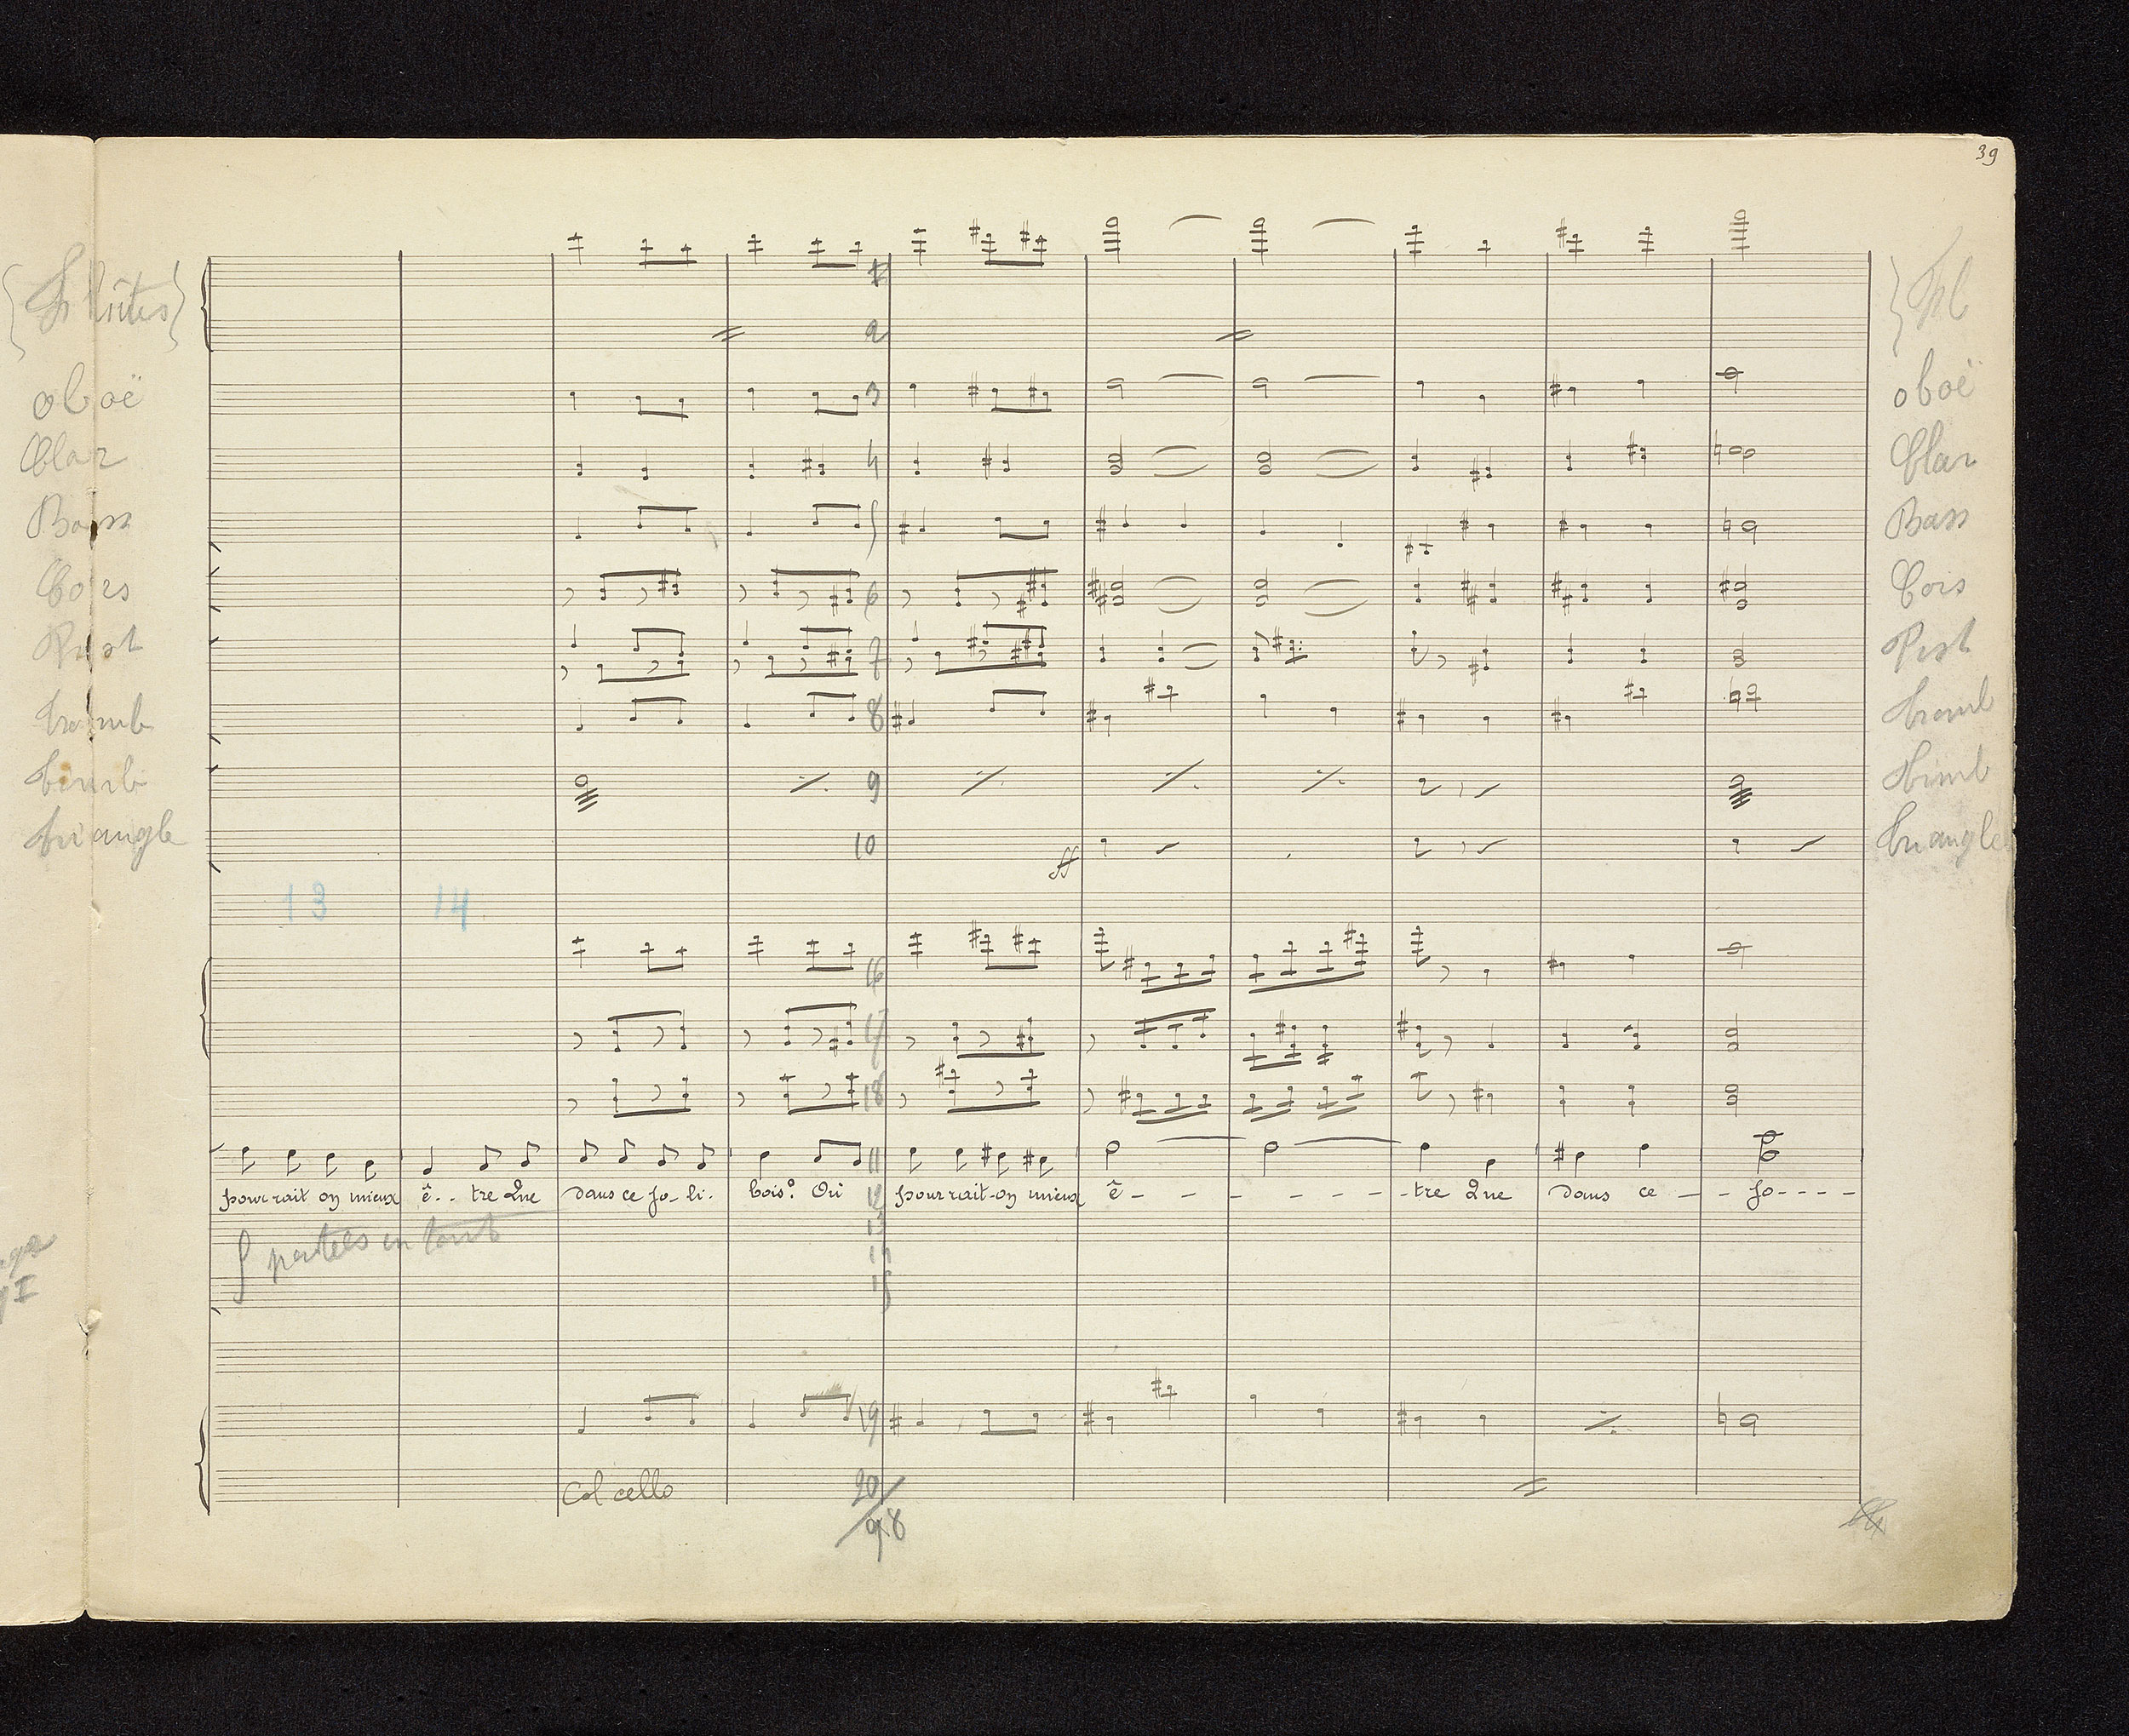 39
Flûtes Fl
1
2
oboë 3 oboë
Clar 4 Clar
Bass 5 Bass
Cors 6 Cors
Pist 7 Pist
tromb 8 tromb
timb 9 timb
triangle 10 triangle
ff
13 14
16
17
18
11
pour rait on mieux ê - - tre Que dans ce jo - li - bois? Où 12 pour rait-on mieux ê - - - - - - - tre Que dans ce - - jo - - - -
13
5 portées en tout
14
15
19
Col cello 20
98